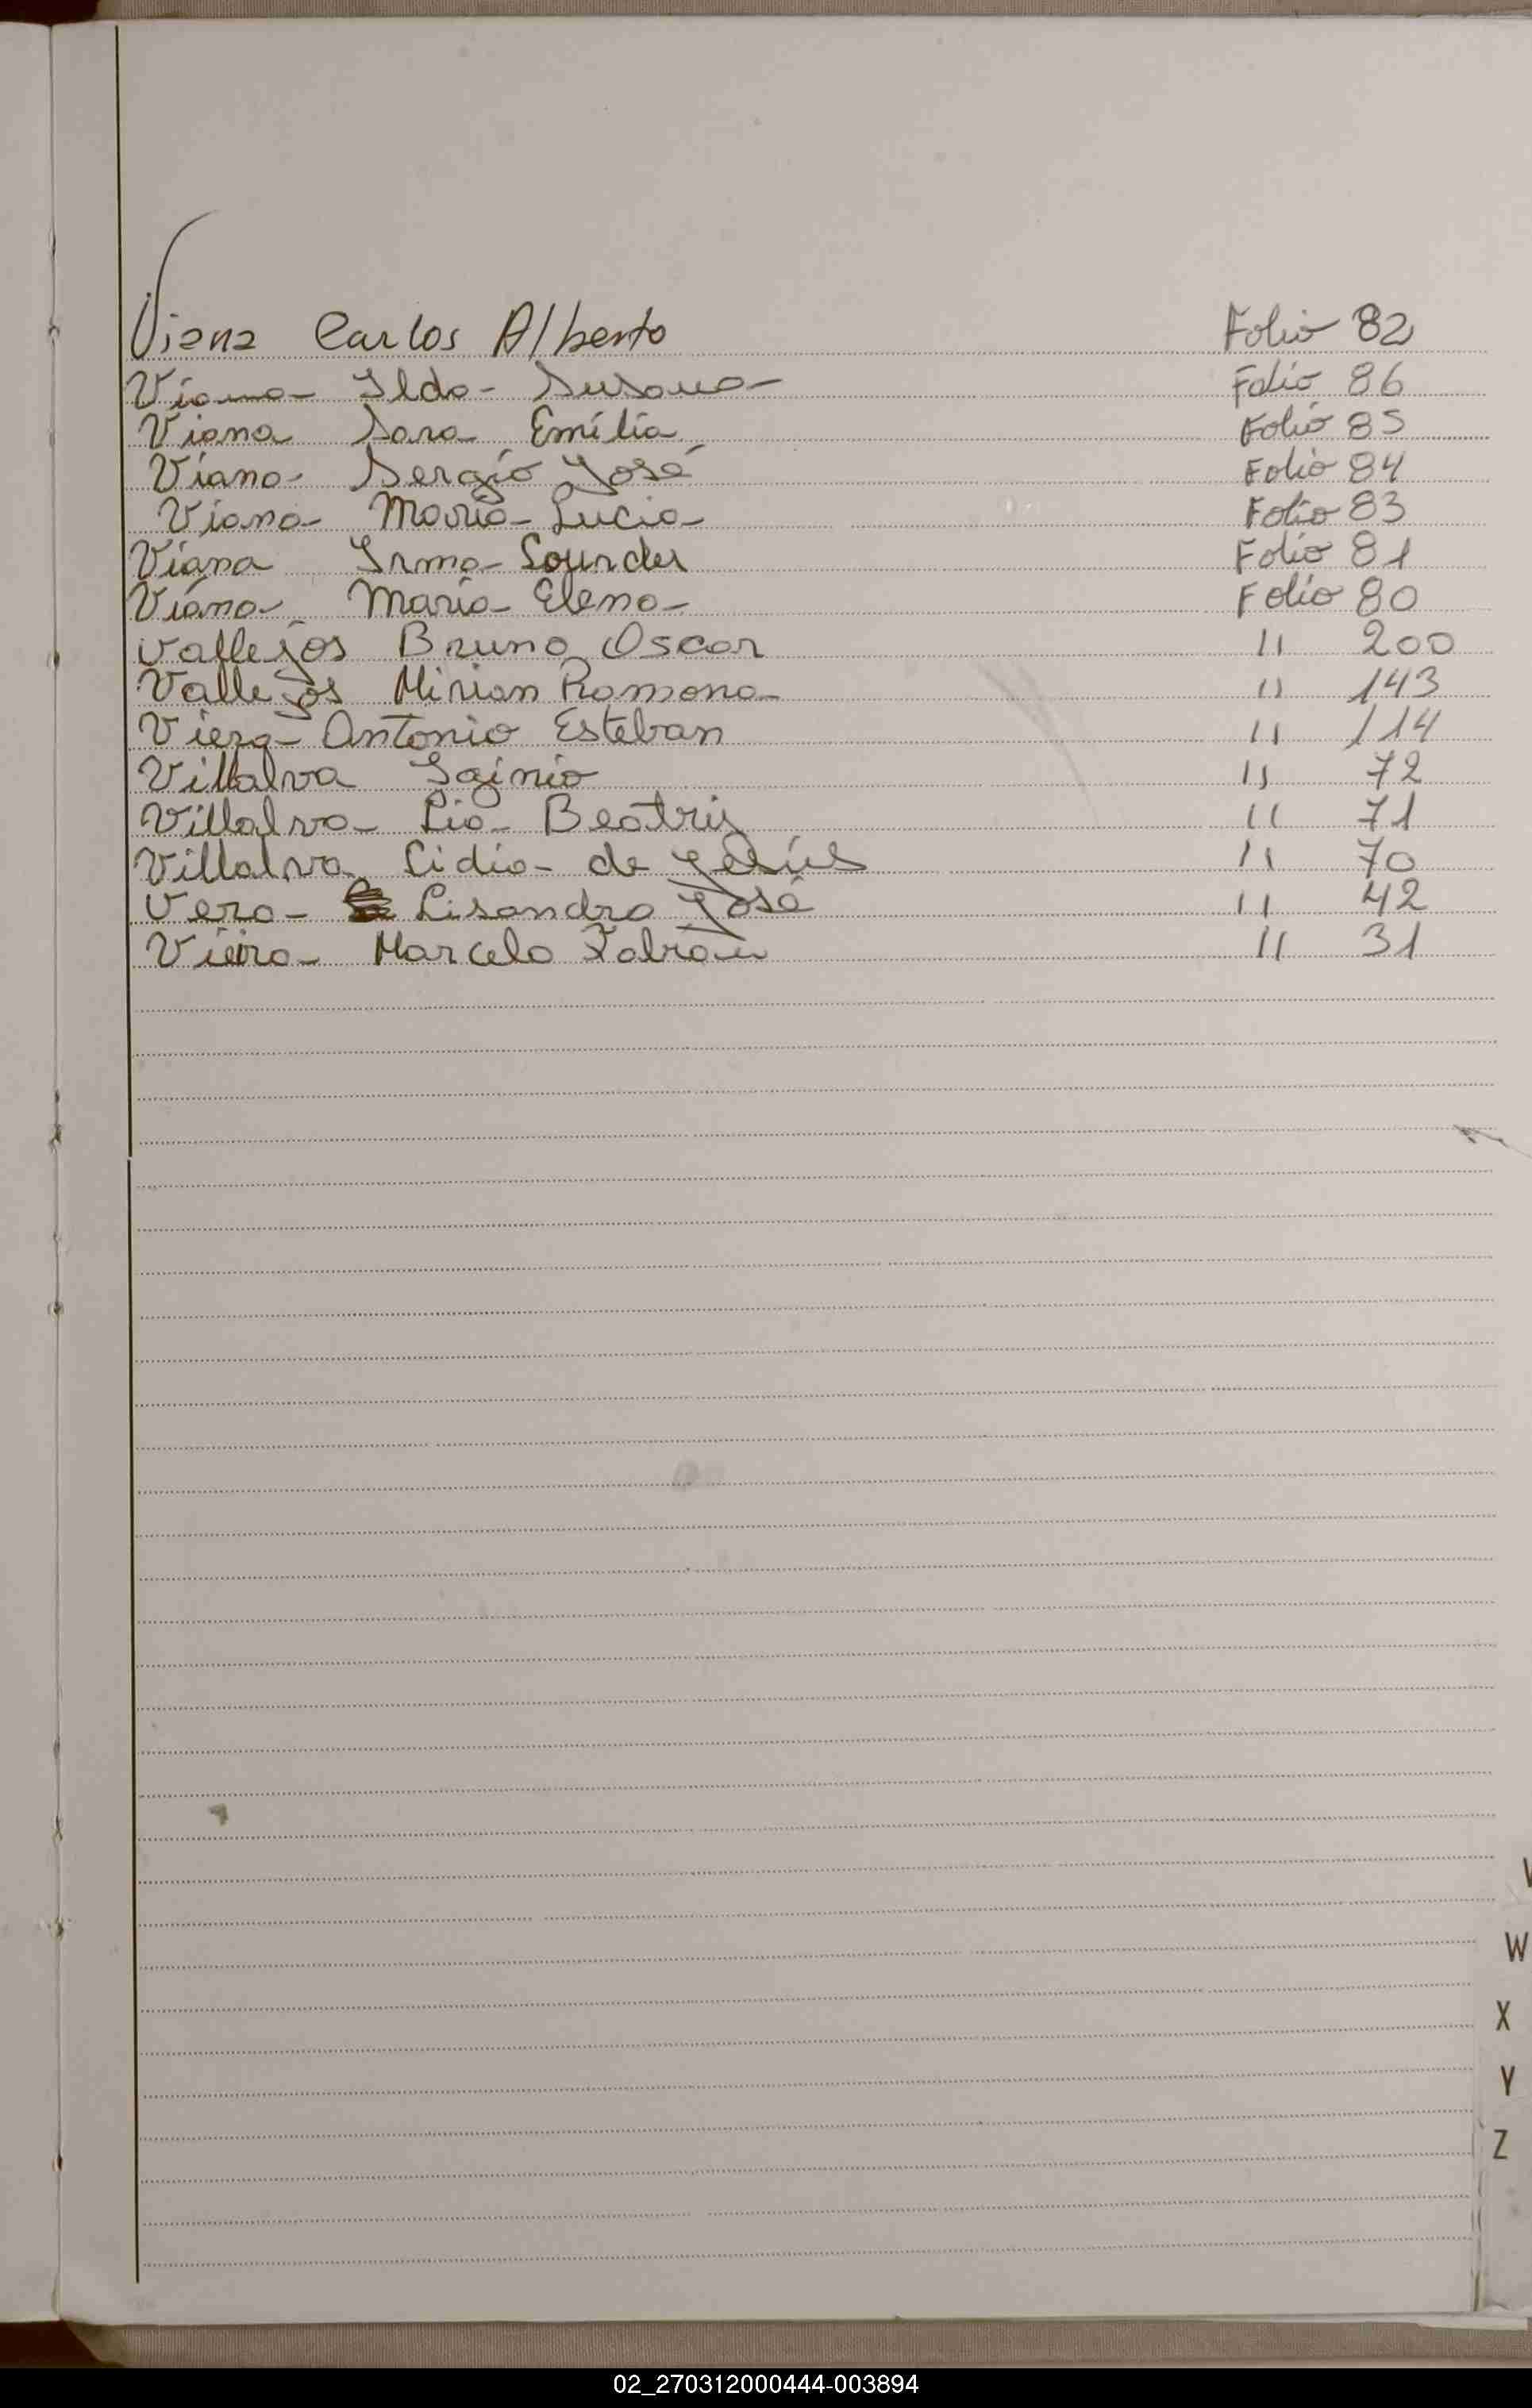 Viana Carlos Alberto Folio 82
Viana Ilda Susana Folio 86
Viana Sara Emilia Folio 85
Viana Sergio José Folio 84
Viana Maria Lucia Folio 83
Viana Irma Lourdes Folio 81
Viana Maria Elena Folio 80
Vallejos Bruno Oscar " 200
Vallejos Mirian Ramona " 143
Viera Antonio Esteban " 114
Villalva Iginio " 72
Villalva Lia Beatriz " 71
Villalva Lidia de Jesús " 70
Vera Lisandro José " 42
Vieira Marcelo Fabian " 31
V
W
X
Y
Z
02_270312000444-003894